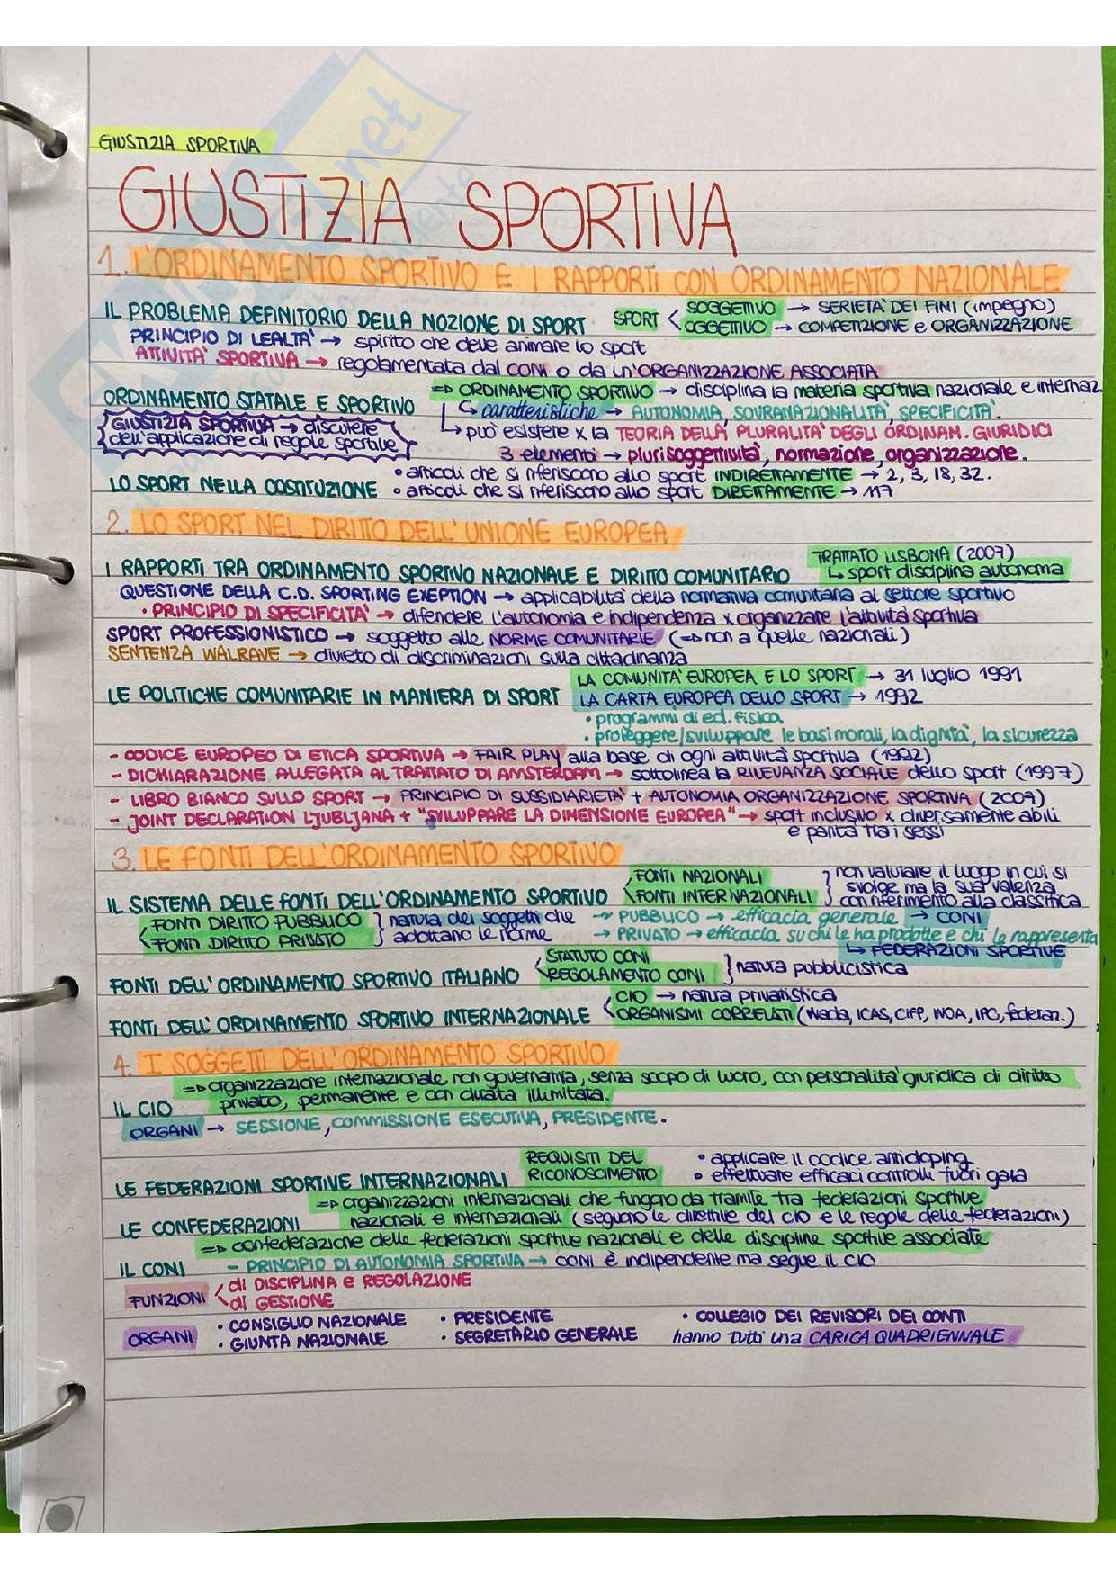 GIUSTIZIA SPORTIVA
GIUSTIZIA SPORTIVA
1. L'ORDINAMENTO SPORTIVO E I RAPPORTI CON ORDINAMENTO NAZIONALE
IL PROBLEMA DEFINITORIO DELLA NOZIONE DI SPORT SPORT < SOGGETTIVO → SERIETA' DEI FINI (impegno)
OGGETTIVO → COMPETIZIONE e ORGANIZZAZIONE
PRINCIPIO DI LEALTA' → spirito che deve animare lo sport
ATTIVITA' SPORTIVA → regolamentata dal CONI o da un'ORGANIZZAZIONE ASSOCIATA
ORDINAMENTO STATALE E SPORTIVO => ORDINAMENTO SPORTIVO → disciplina la materia sportiva nazionale e internaz
↳ caratteristiche → AUTONOMIA, SOVRANAZIONALITA', SPECIFICITA'.
GIUSTIZIA SPORTIVA → discutere
dell'applicazione di regole sportive
↳ può esistere x la TEORIA DELLA PLURALITA' DEGLI ORDINAM. GIURIDICI
3 elementi → plurisoggettività, normazione, organizzazione.
LO SPORT NELLA COSTITUZIONE • articoli che si riferiscono allo sport INDIRETTAMENTE → 2, 3, 18, 32.
• articoli che si riferiscono allo sport DIRETTAMENTE → 117
2. LO SPORT NEL DIRITTO DELL'UNIONE EUROPEA
I RAPPORTI TRA ORDINAMENTO SPORTIVO NAZIONALE E DIRITTO COMUNITARIO TRATTATO LISBONA (2007)
↳ sport disciplina autonoma
QUESTIONE DELLA C.D. SPORTING EXEPTION → applicabilità della normativa comunitaria al settore sportivo
• PRINCIPIO DI SPECIFICITA' → difendere l'autonomia e indipendenza x organizzare l'attività sportiva
SPORT PROFESSIONISTICO → soggetto alle NORME COMUNITARIE (=> non a quelle nazionali)
SENTENZA WALRAVE → divieto di discriminazioni sulla cittadinanza
LE POLITICHE COMUNITARIE IN MANIERA DI SPORT LA COMUNITA' EUROPEA E LO SPORT → 31 luglio 1991
LA CARTA EUROPEA DELLO SPORT → 1992
• programmi di ed. fisica
• proteggere/sviluppare le basi morali, la dignità, la sicurezza
- CODICE EUROPEO DI ETICA SPORTIVA → FAIR PLAY alla base di ogni attività sportiva (1992)
- DICHIARAZIONE ALLEGATA AL TRATTATO DI AMSTERDAM → sottolinea la RILEVANZA SOCIALE dello sport (1997)
- LIBRO BIANCO SULLO SPORT → PRINCIPIO DI SUSSIDIARIETA' + AUTONOMIA ORGANIZZAZIONE SPORTIVA (2007)
- JOINT DECLARATION LJUBLJANA + "SVILUPPARE LA DIMENSIONE EUROPEA" → sport inclusivo x diversamente abili
e parità tra i sessi
3. LE FONTI DELL'ORDINAMENTO SPORTIVO
IL SISTEMA DELLE FONTI DELL'ORDINAMENTO SPORTIVO < FONTI NAZIONALI
FONTI INTERNAZIONALI } non valutare il luogo in cui si
svolge ma la sua valenza
con riferimento alla classifica
< FONTI DIRITTO PUBBLICO
FONTI DIRITTO PRIVATO } natura dei soggetti che
adottano le norme
→ PUBBLICO → efficacia generale → CONI
→ PRIVATO → efficacia su chi le ha prodotte e chi le rappresenta
↳ FEDERAZIONI SPORTIVE
FONTI DELL'ORDINAMENTO SPORTIVO ITALIANO < STATUTO CONI
REGOLAMENTO CONI } natura pubblicistica
FONTI DELL'ORDINAMENTO SPORTIVO INTERNAZIONALE < CIO → natura privatistica
ORGANISMI CORRELATI (Wada, ICAS, CIFP, WOA, IPC, federaz.)
4. I SOGGETTI DELL'ORDINAMENTO SPORTIVO
IL CIO => organizzazione internazionale non governativa, senza scopo di lucro, con personalità giuridica di diritto
privato, permanente e con durata illimitata.
ORGANI → SESSIONE, COMMISSIONE ESECUTIVA, PRESIDENTE.
LE FEDERAZIONI SPORTIVE INTERNAZIONALI REQUISITI DEL
RICONOSCIMENTO
• applicare il codice antidoping
• effettuare efficaci controlli fuori gara
LE CONFEDERAZIONI => organizzazioni internazionali che fungono da tramite tra federazioni sportive
nazionali e internazionali (seguono le direttive del CIO e le regole delle federazioni)
IL CONI => confederazione delle federazioni sportive nazionali e delle discipline sportive associate
- PRINCIPIO DI AUTONOMIA SPORTIVA → CONI è indipendente ma segue il CIO
FUNZIONI < di DISCIPLINA e REGOLAZIONE
di GESTIONE
ORGANI • CONSIGLIO NAZIONALE • PRESIDENTE • COLLEGIO DEI REVISORI DEI CONTI
• GIUNTA NAZIONALE • SEGRETARIO GENERALE hanno tutti una CARICA QUADRIENNALE